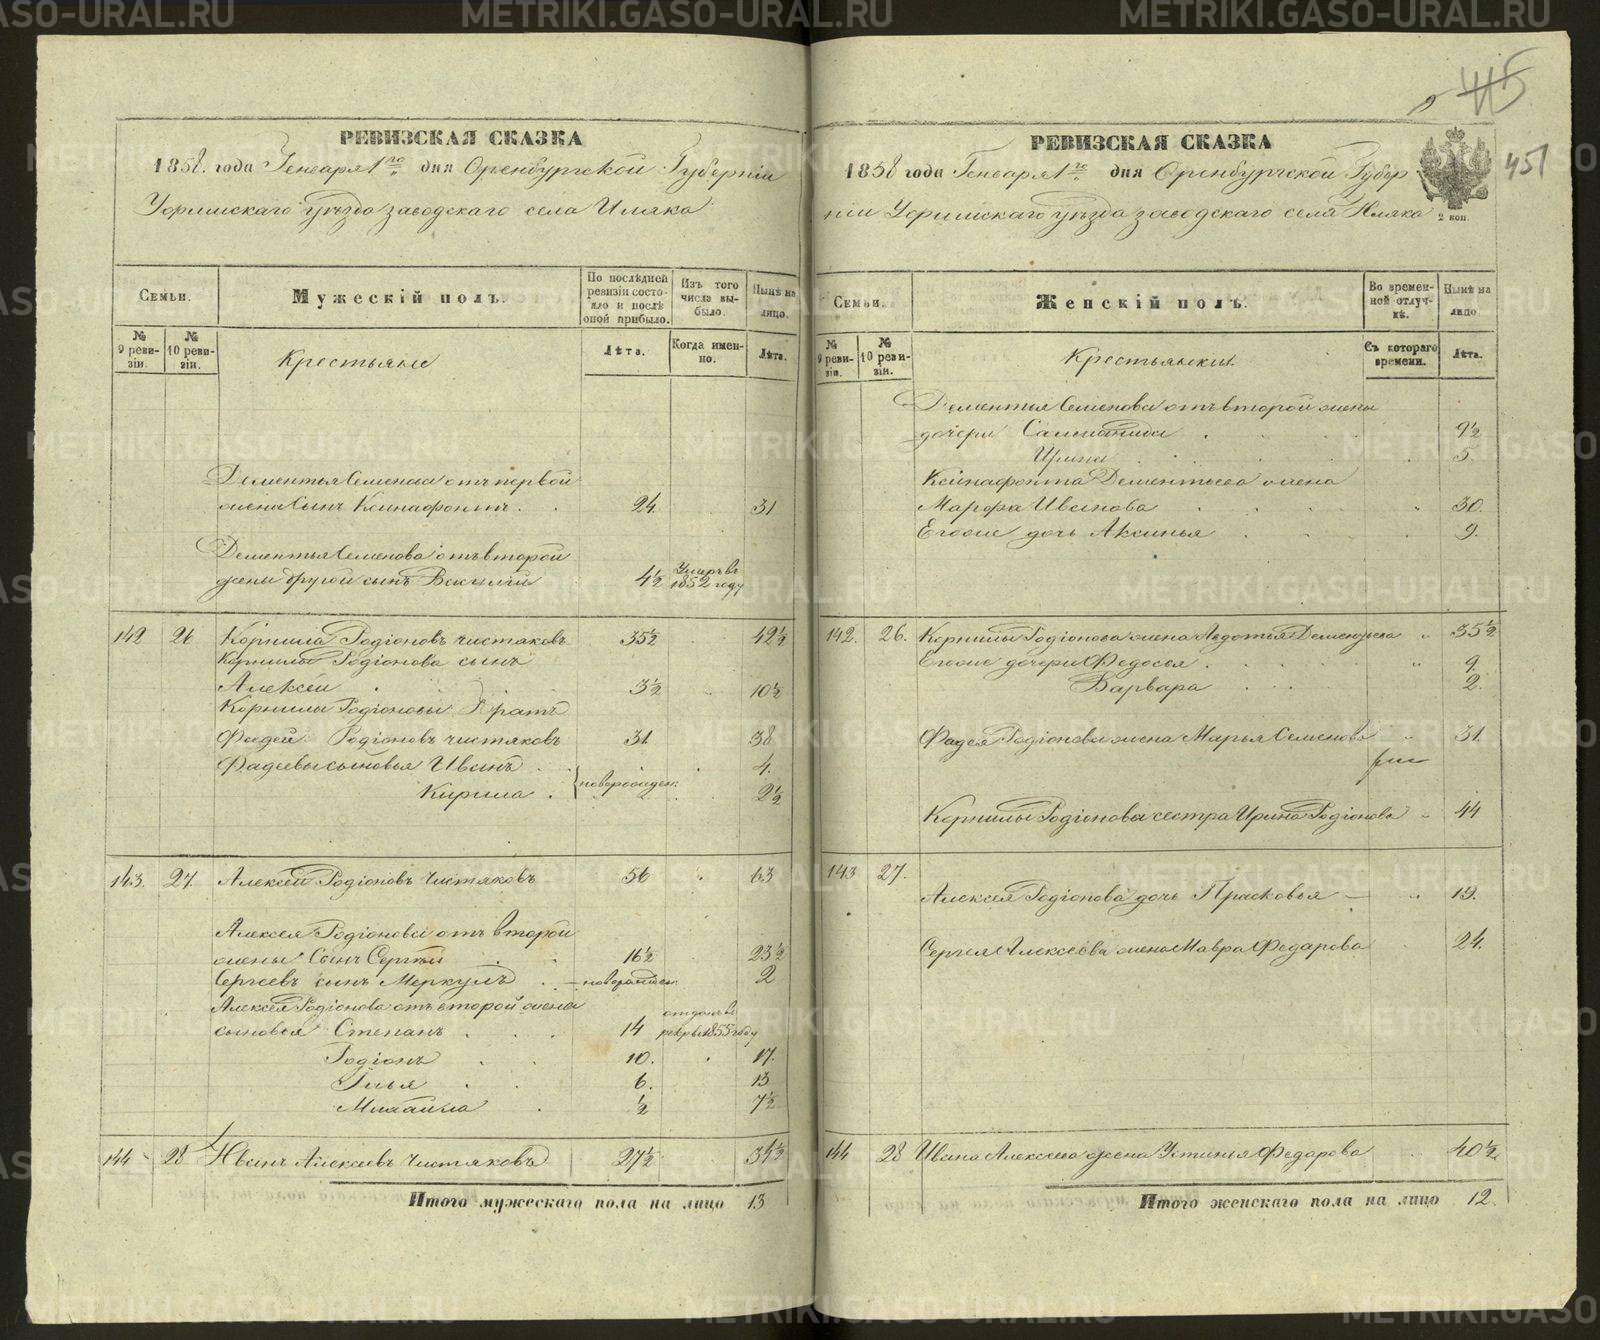 РЕВИЗСКАЯ СКАЗКА
1858. года Генваря 1го дня Оренбургской Губерніи
уѣзда заводскаго села Иляка
Семьи.
Мужескій полъ.
По послѣдней ревизіи состояло и послѣ оной прибыло.
Изъ того числа выбыло.
Нынѣ на лицо.
№ 9 ревизіи.
№ 10 ревизіи.
Крестьяне
Лѣта.
Когда именно.
Лѣта.
Дементья Семенова отъ первой
жены сынъ Ксинафонтъ. 24. 31
Дементья Семенова отъ второй
жены другой сынъ Василій 4½ Умеръ въ 1852 году
142 26 Корнила Родіоновъ Чистяковъ 35½ 42½
Корнилы Родіонова сынъ
Алексѣй 3½ 10½
Корнилы Родіоновы братъ
Фадей Родіоновъ Чистяковъ 31. 38
Фадеевы сыновья Иванъ 4.
Кирила новорожден. 2½
143. 27. Алексѣй Родіоновъ Чистяковъ 56 63
Алексея Родіонова отъ второй
жены Сынъ Сергѣй 16½ 23½
Сергѣевъ сынъ Меркулъ новорожден. 2
Алексѣя Родіонова отъ второй жены
сыновья Степанъ 14 отданъ въ рекруты 1855 году
Родіонъ 10. 17.
Илья 6. 13
Михайла ½ 7½
144 28 Иванъ Алексѣевъ Чистяковъ 27½ 34½
Итого мужескаго пола на лицо 13
445
451
РЕВИЗСКАЯ СКАЗКА
1858 года Генваря 1го дня Оренбургской Губер
ніи уѣзда заводскаго села Иляка
2 коп.
Семьи.
Женскій полъ.
Во временной отлучкѣ.
Нынѣ на лицо
№ 9 ревизіи.
№ 10 ревизіи.
Крестьянки.
Съ котораго времени.
Лѣта.
Дементья Семенова отъ второй жены
дочери 9½
Ирина 5.
Ксинафонта Дементьева жена
Марфа Иванова 30.
Егоже дочь Аксинья 9.
142. 26. Корнилы Родіонова жена Авдотья Дементьева 35½
Егоже дочери Федосья 9.
Варвара 2.
Фадея Родіонова жена Марья Семенова 31.
Корнилы Родіонова сестра Ирина Родіонова 44
143 27. Алексея Родіонова дочь Прасковья 19.
Сергея Алексѣева жена Мавра Федарова 24.
144 28 Ивана Алексѣева жена Устинья Федарова 40½
Итого женскаго пола на лицо 12.
METRIKI.GASO-URAL.RU